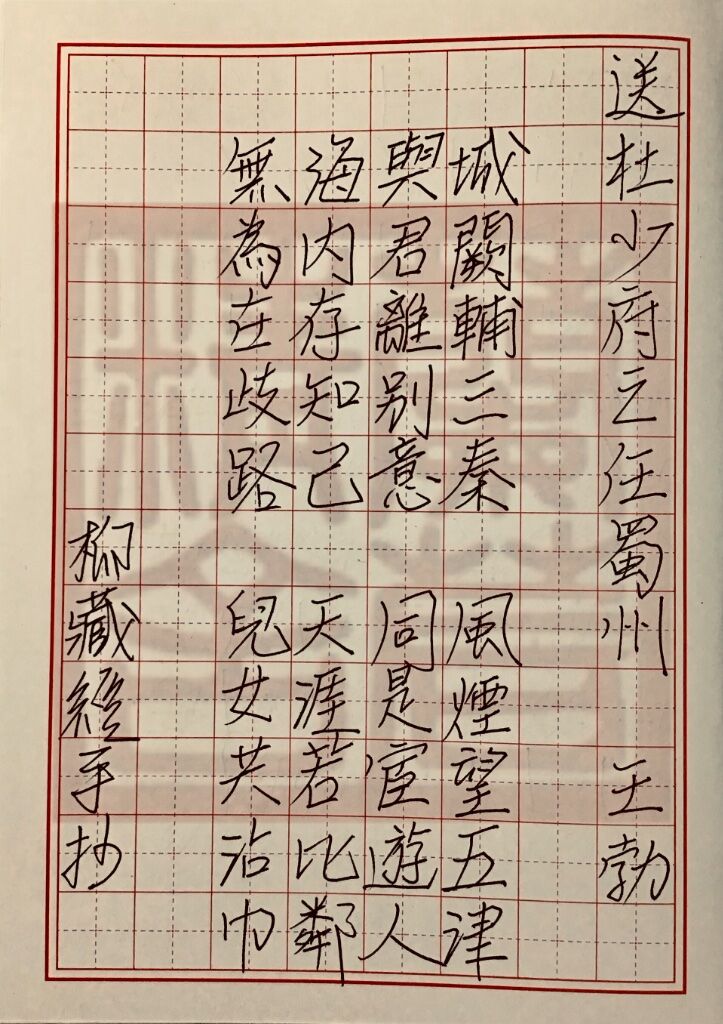 送杜少府之任蜀州 王勃
城闕輔三秦 風煙望五津
與君離别意 同是宦遊人
海内存知己 天涯若比鄰
無為在歧路 兒女共沾巾
柳藏經手抄